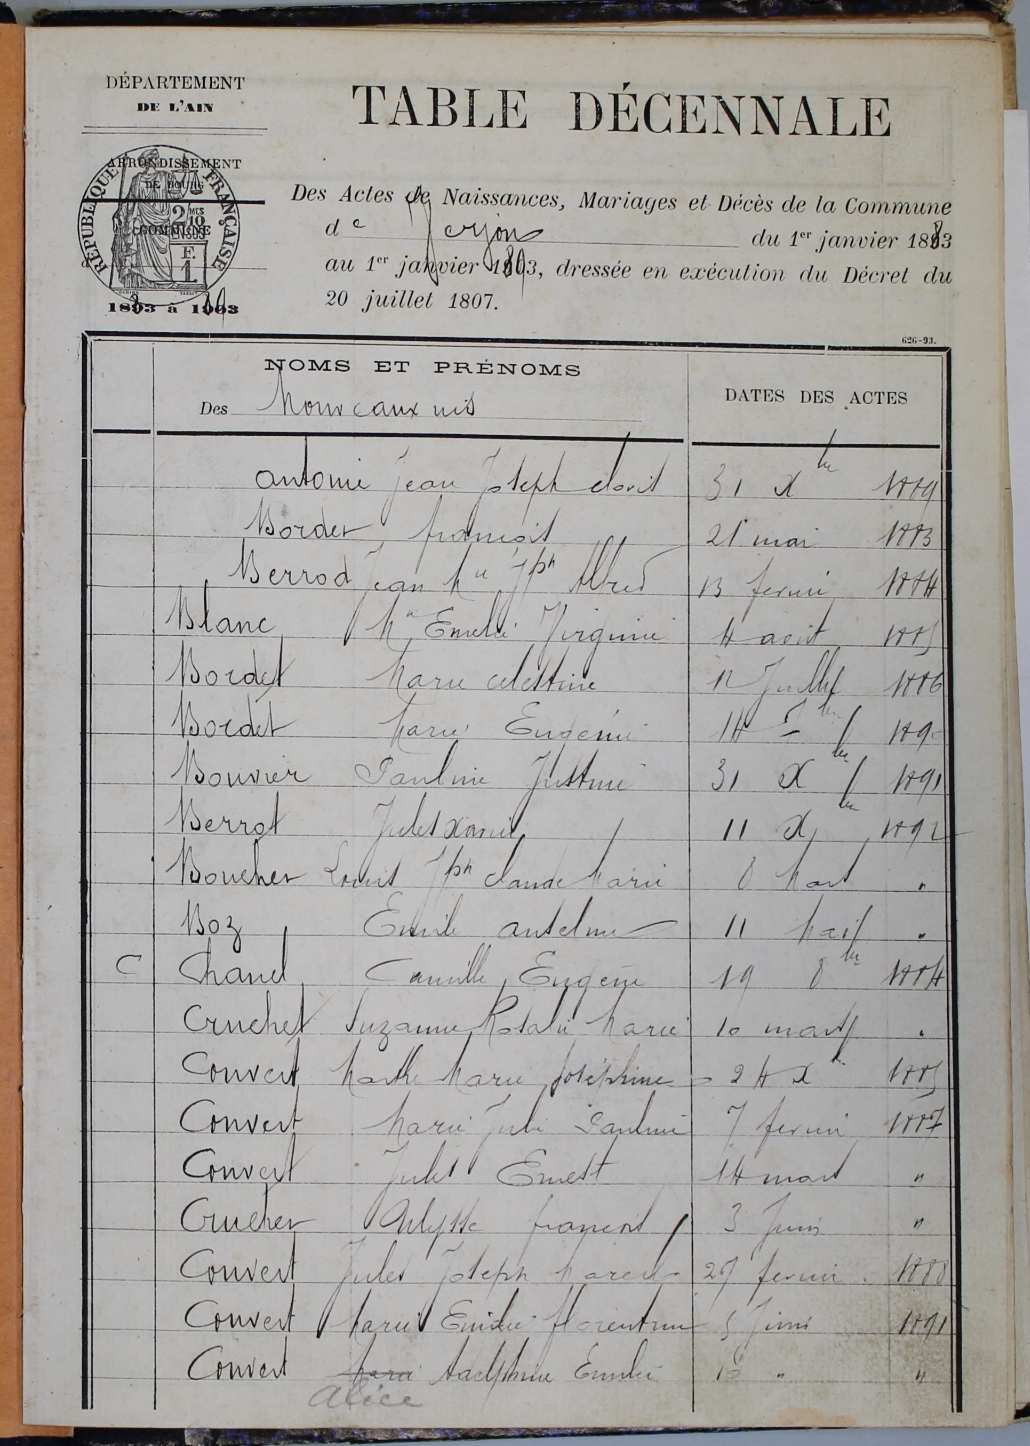 DÉPARTEMENT
DE L'AIN
ARRONDISSEMENT
DE BOURG
COMMUNE
RÉPUBLIQUE FRANÇAISE
2 10 MES
EN SUS
F.
1
1893 à 1903
TABLE DÉCENNALE
Des Actes de Naissances, Mariages et Décès de la Commune
de Verjon du 1er janvier 1883
au 1er janvier 1893, dressée en exécution du Décret du
20 juillet 1807.
626-93.
NOMS ET PRÉNOMS
Des Nouveaux nés
DATES DES ACTES
Antoine Jean Joseph 31 Xbre 1889
Bordet françois 21 mai 1883
Berrod Jean Mie Jph Alfred 13 fevrier 1884
Blanc Mie Emélie Virginie 4 aout 1885
Bordet Marie celestine 12 Juillet 1886
Bordet Marie Eugénie 14 bre 1890
Bouvier Pauline Justine 31 Xbre 1891
Berrot Jules 11 Xbre 1892
Boucher Louis Jph claude Marie 8 Mars "
Boz Emile antelme 11 Mai "
C Chanel Camille Eugène 19 8bre 1884
Cruchet Suzanne Rosalie Marie 10 mars "
Convert Marthe Marie Joséphine 24 Xbre 1885
Convert Marie Julie Pauline 7 fevrier 1887
Convert Jules Ernest 14 mars "
Crucher Ulysse françois 3 Juin "
Convert Jules Joseph Marcel 27 fevrier 1888
Convert Marie Emilie florentine 5 Juin 1891
Convert Marie Adelphine Emilie "
Alice